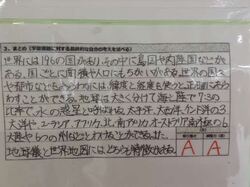 3．まとめ（学習課題に対する最終的な自分の考えを述べる）
世界には196の国があり、その中に島国や内陸国などがあ
る。国ごとに面積や人口にもちがいがある。世界の国々
や都市などをしらべるには、緯度と経度を使うと正確にあら
わすことができる。地球は大きく分けて海と陸で7:3の
比率で、水の惑星と呼ばれる。太平洋、大西洋、インド洋の3
大洋やユーラシア、アフリカ、北・南アメリカ、オーストラリア、南極の6
大陸や6つの州などとわけることができた。
地球儀と世界地図にはどちらも特徴がある。
A A